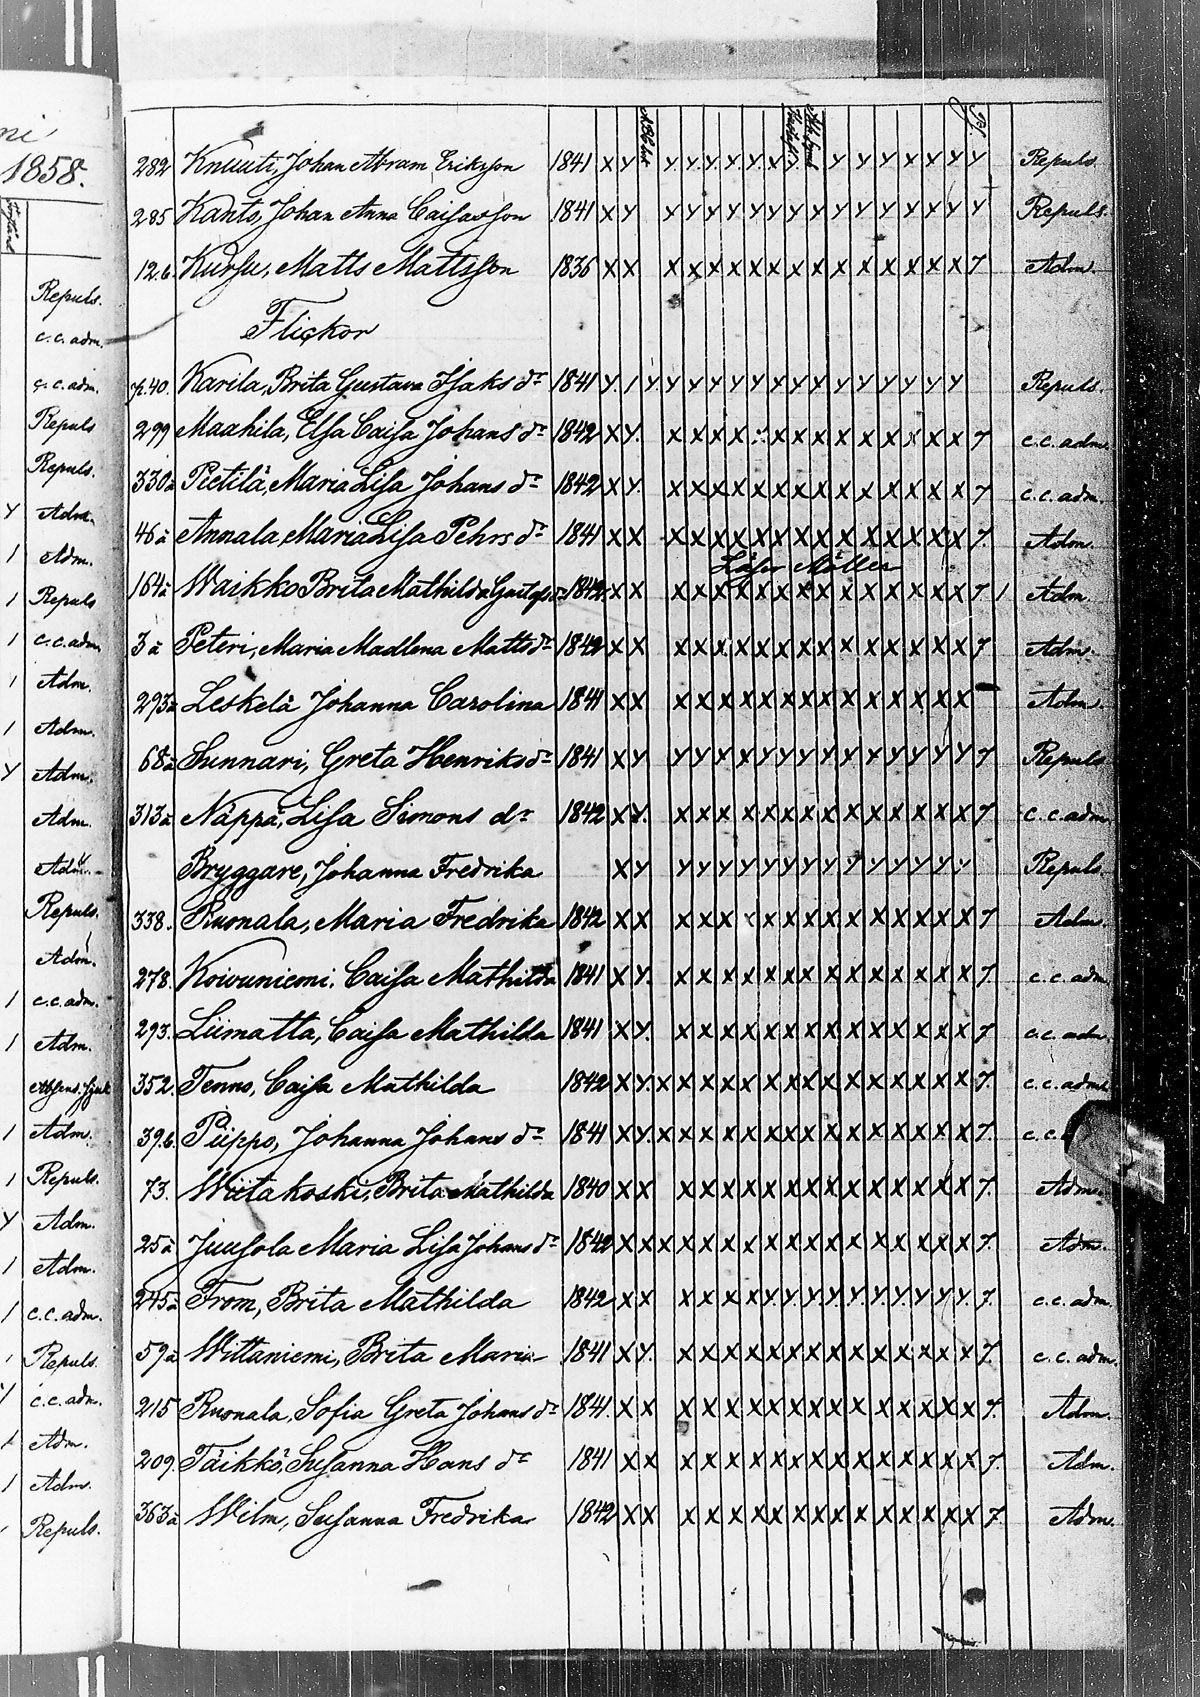 1858.
Repuls.
c.c. adm.
c.c. adm.
Repuls
Repuls.
Y Adm.
1 Adm.
1 Repuls
1 c.c. adm.
1 Adm.
1 Adm.
Y Adm.
Adm.
Adm.
Repuls.
Adm.
1 c.c. adm.
1 Adm.
1 Adm.
1 Repuls.
Y Adm.
1 Adm.
1 c.c. adm.
Repuls.
c.c. adm.
Adm.
1 Adm.
Repuls.
282 Knuuti, Johan Abram Eriksson 1841 X Y Y Y Y Y Y X Y Y Y Y Y Y Y Y Repuls.
285 Kanto, Johan Anna Caisasson 1841 X Y Y Y Y Y Y Y Y Y Y Y Y Y Y Y Repuls.
126. Kursu, Matts Mattsson 1836 X X X X X X X X X X X X X X X X X 7 Adm.
Flickor
p.40. Karila, Brita Gustava Isaks dr 1841 Y 1 Y Y Y Y Y Y Y Y Y Y Y Y Y Y Repuls.
299 Maahila, Elsa Caisa Johans dr 1842 X Y. X X X X X X X X X X X X X 7 c.c. adm.
330a Pietilä, Maria Lisa Johans dr 1842 X Y. X X X X X X X X X X X X X 7 c.c. adm.
46a Annala, Maria Lisa Pehrs dr 1841 X X X X X X X X X X X X X X X 7. Adm.
Läser Möller
164a Waikko Brita Mathilda Gustafs dr 1842 X X X X X X X X X X X X X X X 7 1 Adm.
3a Peteri, Maria Madlena Matts dr 1842 X X X X X X X X X X X X X X X 7 Adm.
293a Leskelä Johanna Carolina 1841 X X X X X X X X X X X X X X X Adm.
68a Sunnari, Greta Henriks dr 1841 X Y Y Y Y Y Y Y Y Y Y Y Y Y Y 7 Repuls
313a Näppä, Lisa Simons dr 1842 X Y. X X X X X X X X X X X X X 7 c.c. adm.
Bryggare, Johanna Fredrika X Y Y Y Y Y Y Y Y Y Y Y Y Y Y Repuls.
338. Ruonala, Maria Fredrika 1842 X X X X X X X X X X X X X X X 7 Adm.
278. Koivuniemi, Caisa Mathilda 1841 X Y. X X X X X X X X X X X X X 7. c.c. adm
293. Liimatta, Caisa Mathilda 1841 X Y. X X X X X X X X X X X X X 7 c.c. adm
352. Tenno, Caisa Mathilda 1842 X Y. X X X X X X X X X X X X X X 7. c.c. adm.
396. Piippo, Johanna Johans dr 1841 X Y. X X X X X X X X X X X X X X 7. c.c.
73. Wiitakoski, Brita Mathilda 1840 X X X X X X X X X X X X X X X 7. Adm.
25a Juusola Maria Lisa Johans dr 1842 X X X X X X X X X X X X X X X X 7. Adm.
245a From, Brita Mathilda 1842 X X X X X X Y. Y. Y. Y. Y. Y. Y. Y. Y. 7. c.c. adm.
59a Wittaniemi, Brita Maria 1841 X Y. X X X X X X X X X X X X X 7. c.c. adm.
215 Ruonala, Sofia Greta Johans dr 1841. X X X X X X X X X X X X X X X 7. Adm.
209. Täikkö, Susanna Hans dr 1841 X X X X X X X X X X X X X X X 7. Adm.
363a Wilm, Susanna Fredrika 1842 X X X X X X X X X X X X X X X 7. Adm.